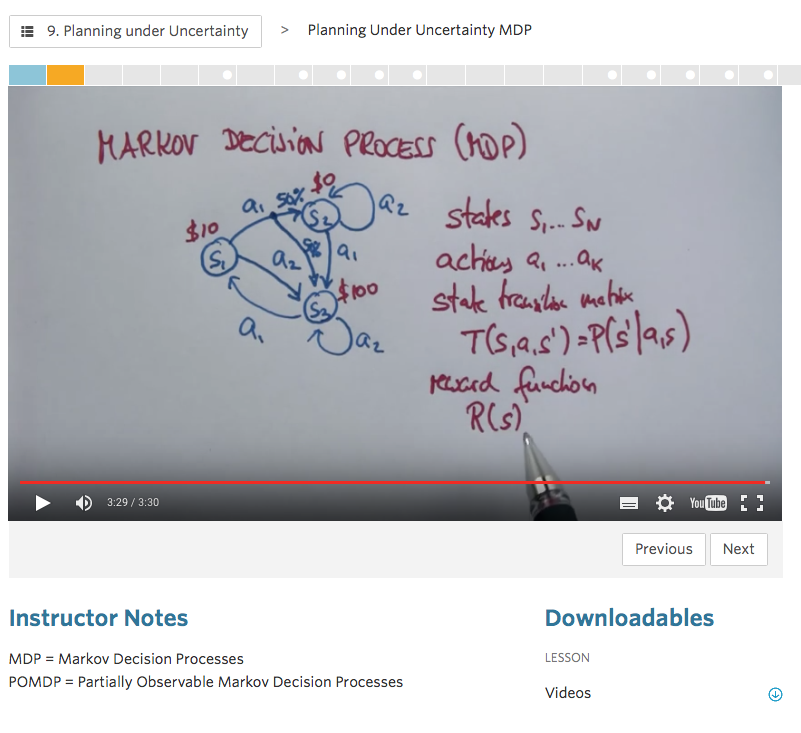 9. Planning under Uncertainty > Planning Under Uncertainty MDP
MARKOV DECISION PROCESS (MDP)
$0
a1 50% S2 a2
$10
S1 a2 a1
$100
S3
a1 a2
states S1... SN
actions a1 ... aK
state transition matrix
T(s,a,s') = P(s'|a,s)
reward function
R(s)
3:29 / 3:30
YouTube
Previous
Next
Instructor Notes
MDP = Markov Decision Processes
POMDP = Partially Observable Markov Decision Processes
Downloadables
LESSON
Videos